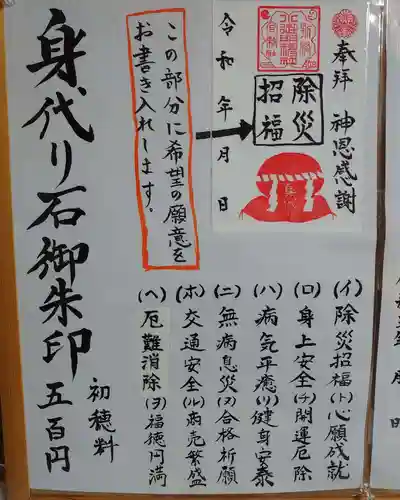 奉拝 神恩感謝
除災
招福
令和 年 月 日
この部分に希望の願意を
お書き入れします。
(イ)除災招福(ト)心願成就
(ロ)身上安全(チ)開運厄除
(ハ)病気平癒(リ)健身安泰
(ニ)無病息災(ヌ)合格祈願
(ホ)交通安全(ル)商売繁盛
(ヘ)厄難消除(ヲ)福徳円満
初穂料
身代り石御朱印 五百円